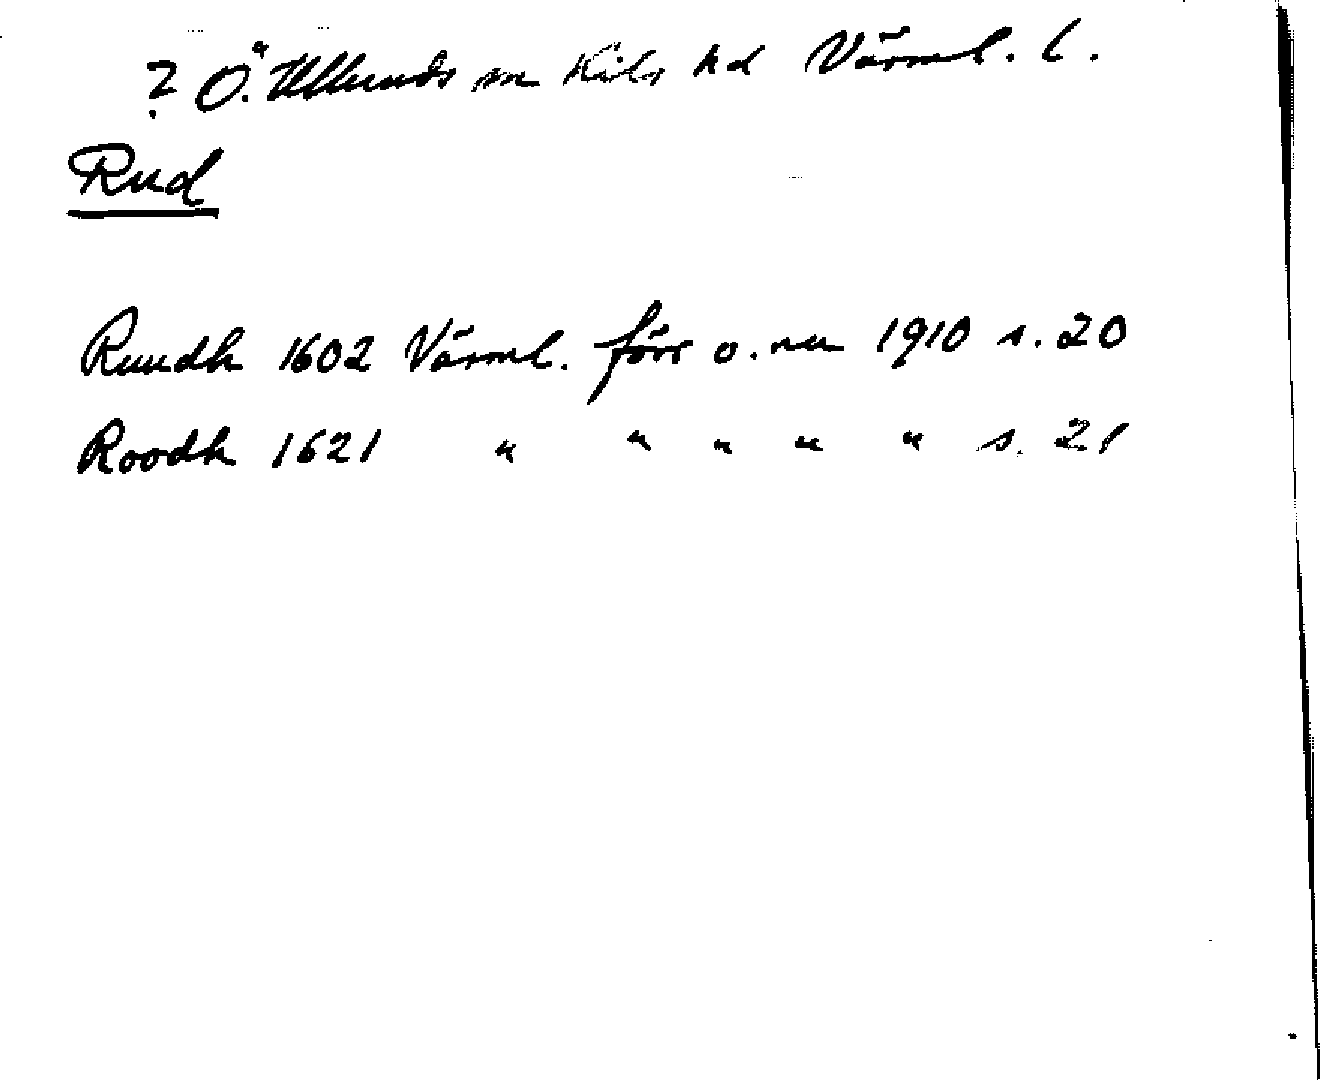 ? Ö. Ulleruds sn Kils hd Värml. l.
Rud
Ruudh 1602 Värml. förr o. nu 1910 s. 20
Roodh 1621 " " " " " s. 21